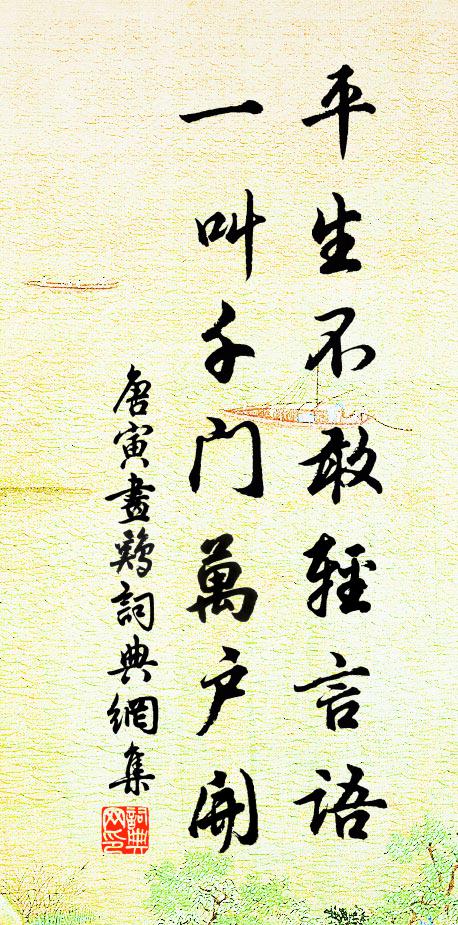 平生不敢輕言語
一叫千門萬户開
唐寅畫鷄詞典網集
詞典网印